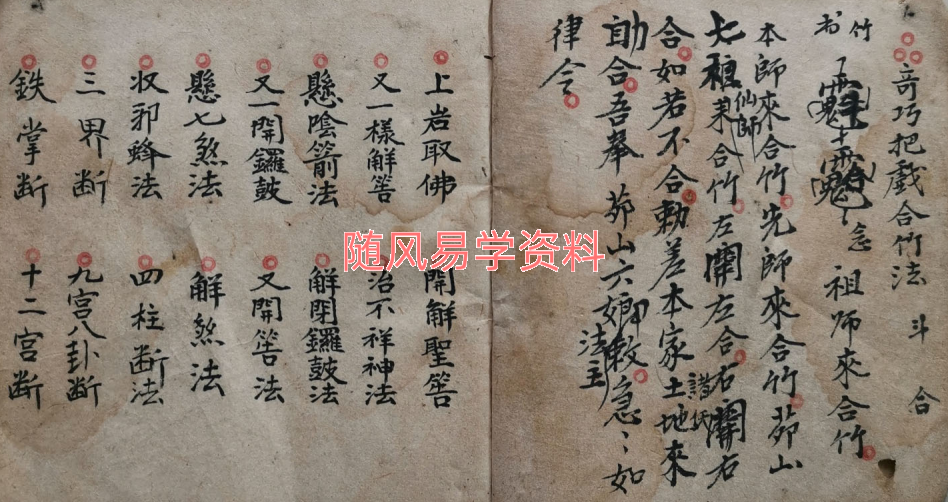 奇巧把戲合竹法 斗 合
竹
念 祖师來合竹
本師來合竹先師來合竹茆山
七祖來合竹左開左合右開右
仙師
合如若不合勅差本家土地來
諸氏
助合吾奉茆山六娘敕急〻如
法主
律令
上岩取佛 開解聖筶
又一樣解筶 治不祥神法
懸陰箭法 解閉鑼鼓法
又一開鑼鼓 又開筶法
懸七煞法 解煞法
收邪蜂法 四柱断法
三界断 九宮八卦断
鉄掌断 十二宮断
随风易学资料